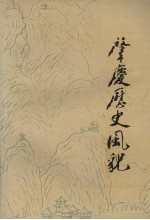 肇慶歷史風貌